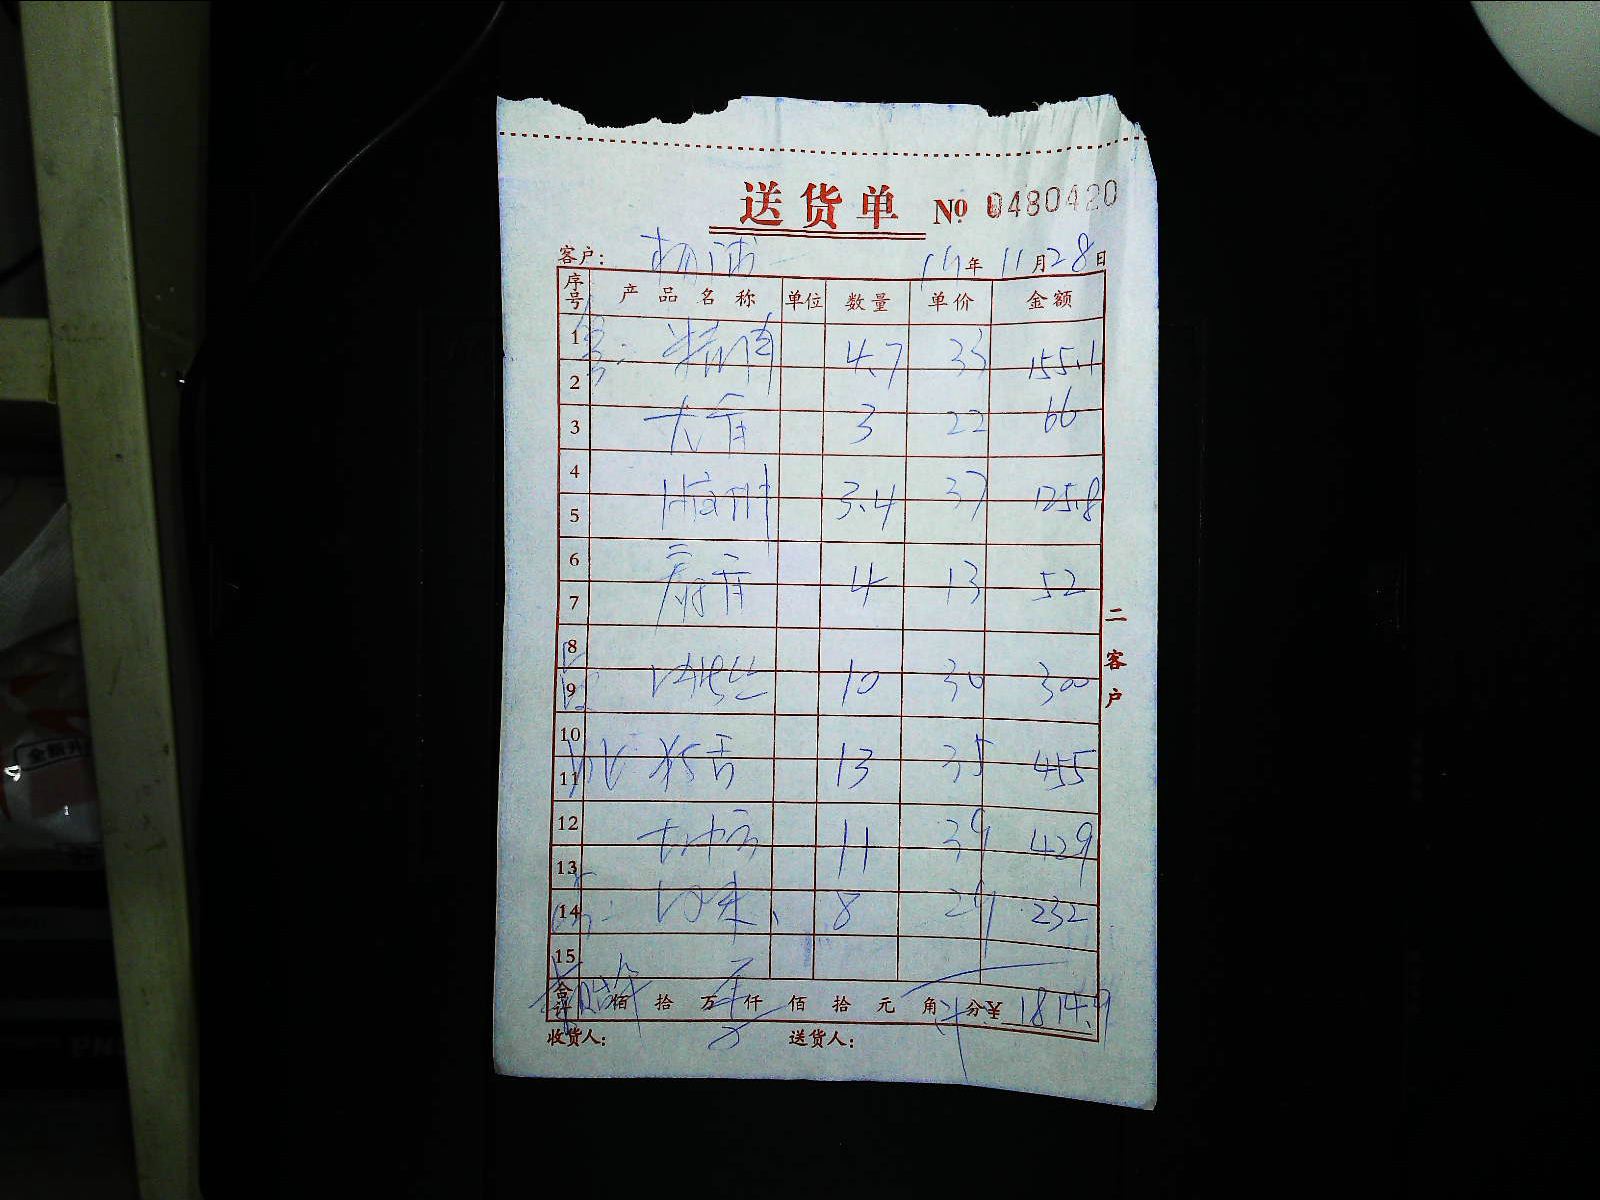 送货单 № 0480420
客户: 杨浦 19年 11月28日
序号 产品名称 单位 数量 单价 金额
1 精肉 4.7 33 155.1
2
3 大骨 3 22 66
4
5 3.4 37 125.8
6
7 扇骨 4 13 52
8
9 肉丝 10 30 300
10
11 13 35 455
12
13 11 39 429
14 肉末 8 29 232
15
合计 佰 拾 万 仟 佰 拾 元 角 分 ¥ 1814.9
收货人: 送货人:
二客户